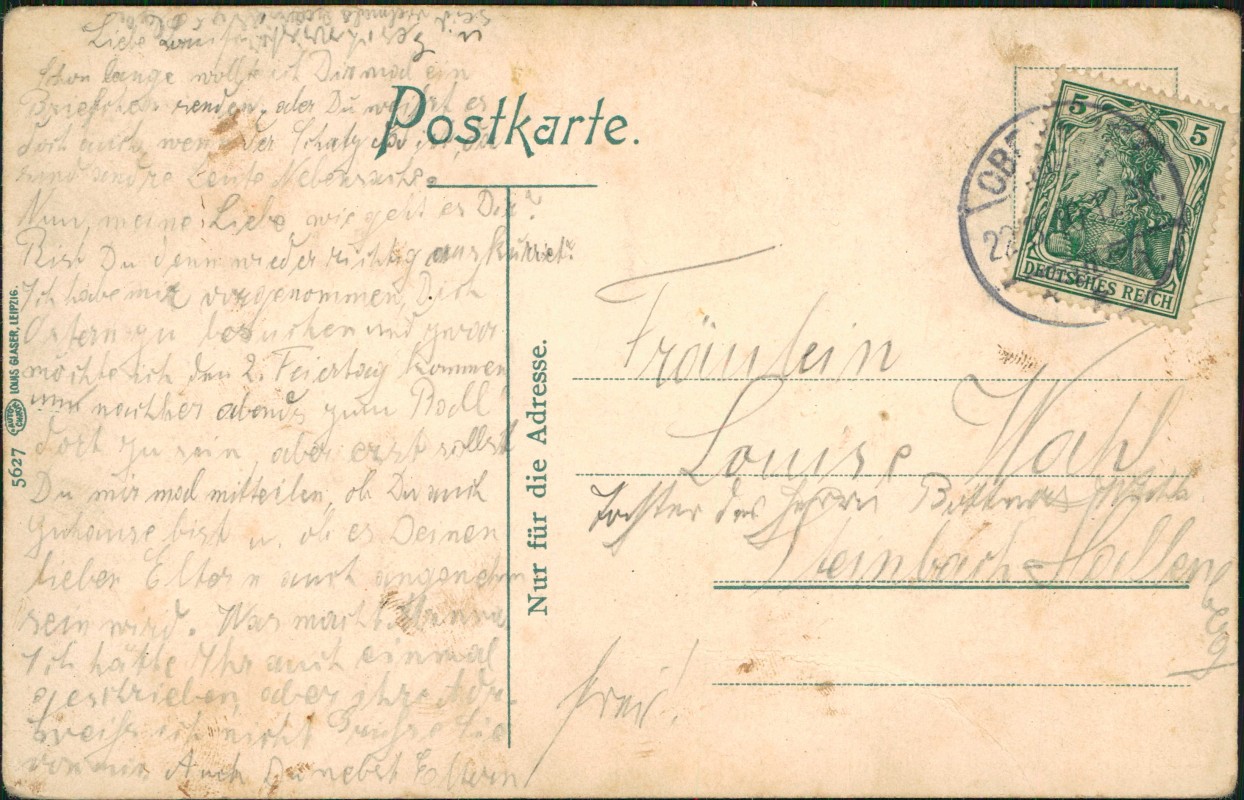 Liebe Louise
Schon lange wollte ich Dir mal ein
Briefchen senden, aber Du weißt es
doch auch, wenn der Schatz da ist,
sind andre Leute Nebensache.
Nun, meine Liebe wie geht es Dir?
Bist Du denn wieder richtig auskuriert?
Ich habe mir vorgenommen, Dich
Ostern zu besuchen und zwar
möchte ich den 2. Feiertag kommen
um nachher abends zum Ball
dort zu sein, aber erst sollst
Du mir mal mitteilen, ob Du auch
zuhause bist u. ob es Deinen
lieben Eltern auch angenehm
sein wird. Was macht
Ich hätte Ihr auch einmal
geschrieben, aber ihre Adr.
weiß ich nicht Grüße sie
von mir Auch Du nebst Eltern
Postkarte.
5627 AUTO-CHROM LOUIS GLASER, LEIPZIG.
Nur für die Adresse.
5 5
DEUTSCHES REICH
Fräulein
Louise Wahl
Tochter des Herrn
Steinbach-Hallenberg
frei!